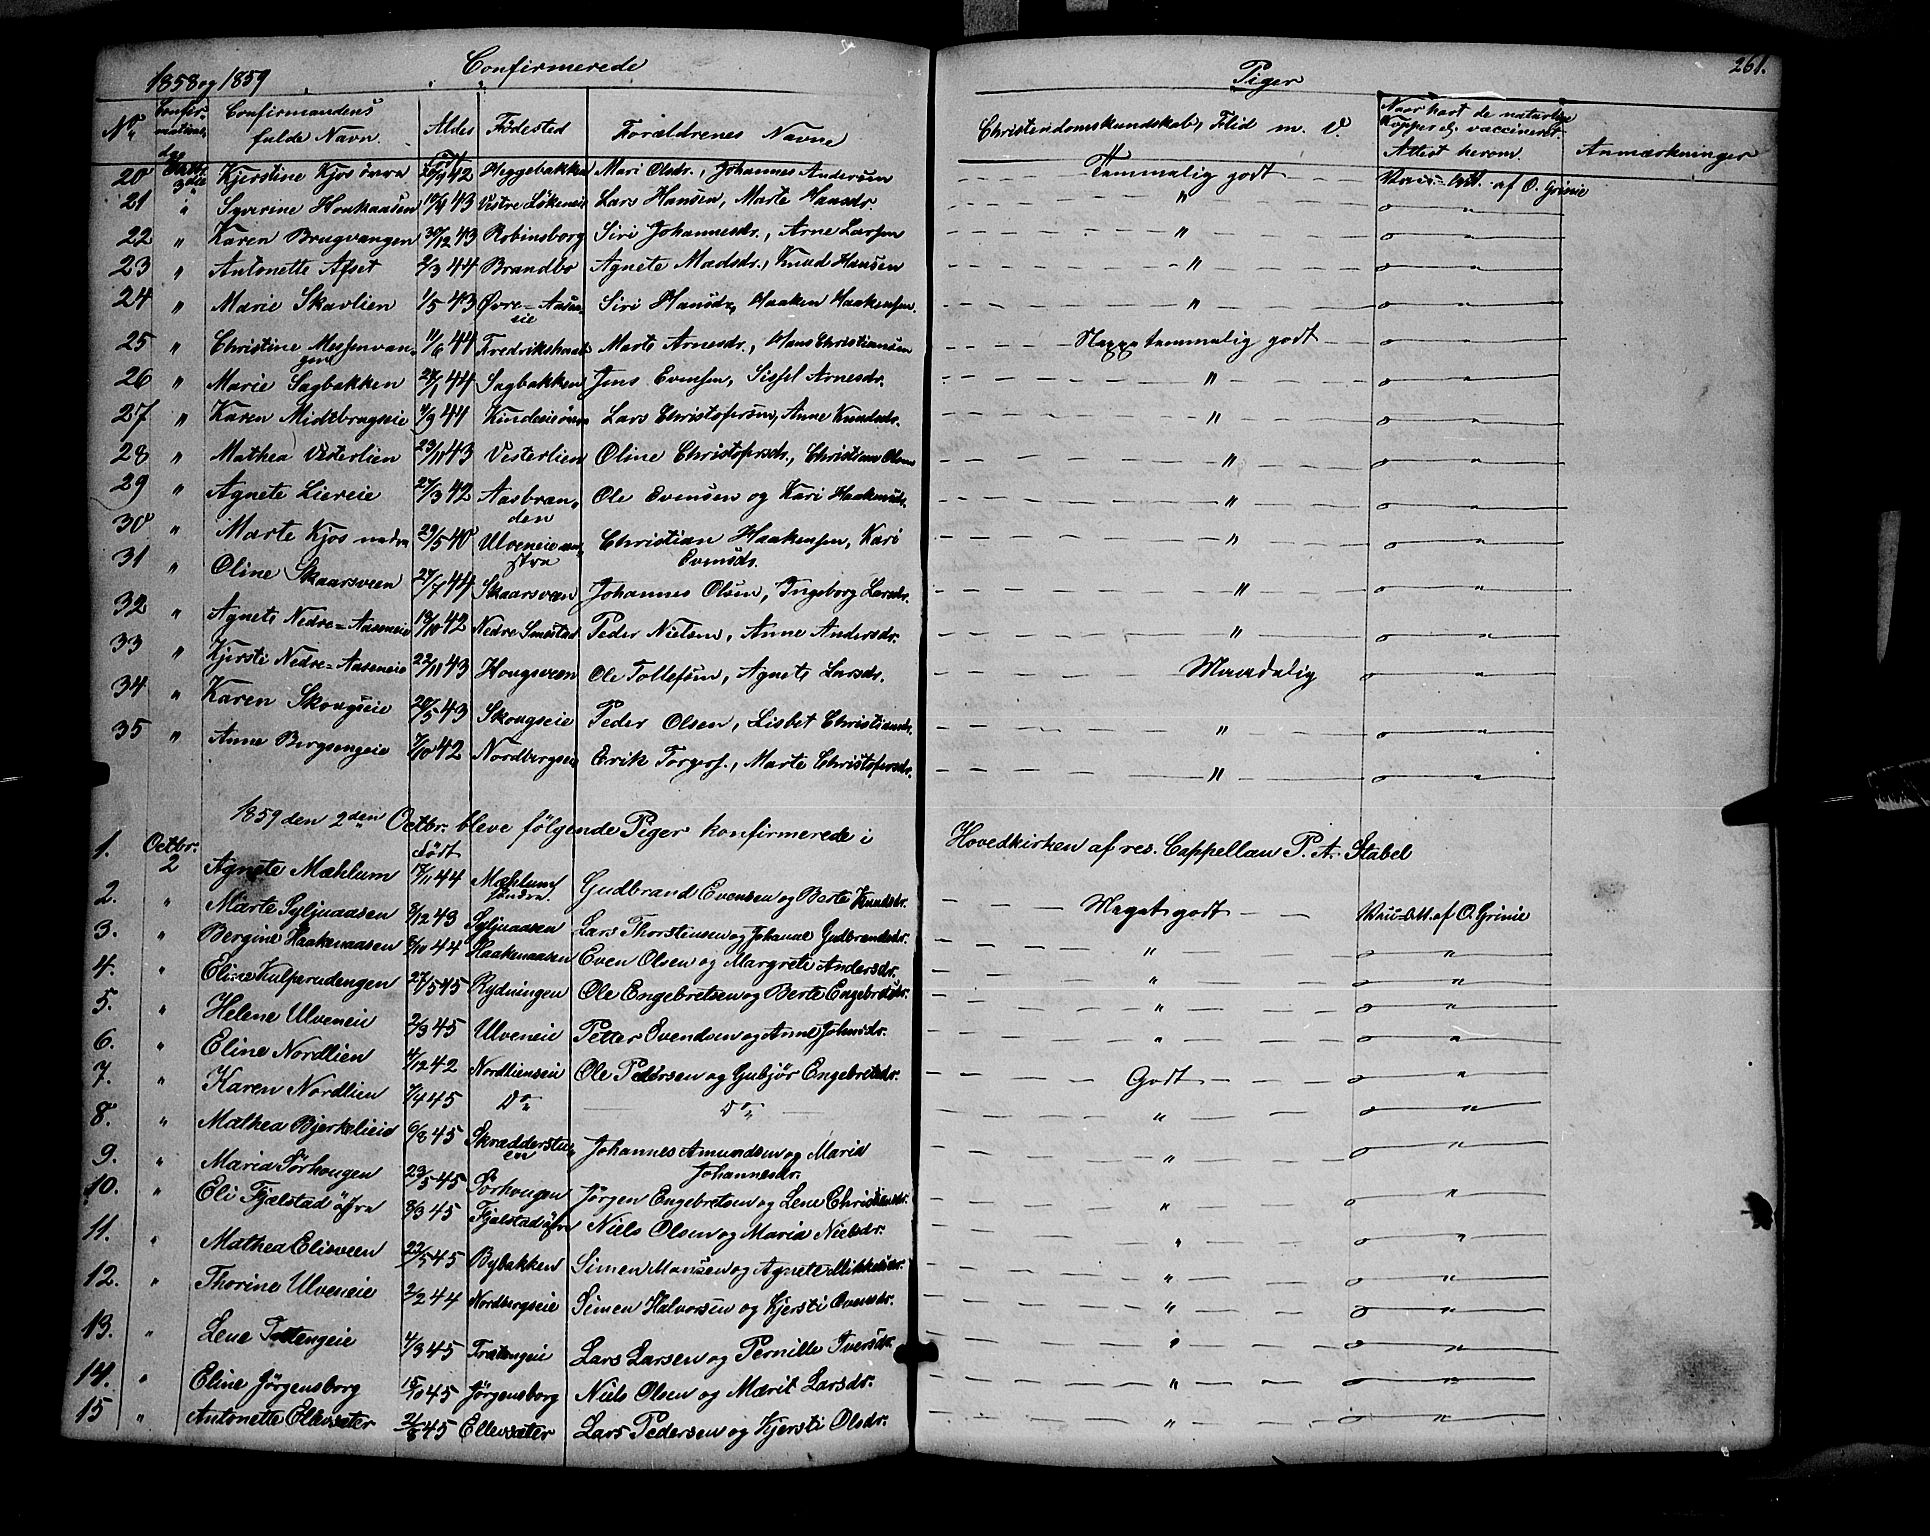 1858 og 1859 Confirmerede Piger 261.
No. Confirmations dag Confirmandens fulde Navn. Alder Födested Forældrenes Navne Christendomskundskab, Flid m. V. Naar havt de naturlige Kopper el. vaccineret. Attest herom. Anmærkninger
20 Octbr. 3die Kjerstine Kjos övre Født 42 Heggebakken Mari Olsdr., Johannes Andersen Temmelig godt Vacc. Att. af O. Grinie
21 " Syverine Honhaasen 43 Vestre Lökeneie Lars Hansen, Marte Hansdr. " "
22 " Karen Brugvangen 30/12 43 Robinsborg Siri Johannesdr., Arne Larsen " "
23 " Antonette Afset 2/3 44 Brandbo Agnete Madsdr., Knud Hansen " "
24 " Marie Skavlien 1/5 43 Øvre=Aasneseie Siri Hansdr., Haaken Haakensen. " "
25 " Christine Messenvangen 11/6 44 Fredrikshald Marte Arnesdr., Hans Christiansen Nogge temmelig godt "
26 " Marie Sagbakken 27/1 44 Sagbakken Jens Evensen, Sissel Arnesdr. " "
27 " Karen Midtbrugseie 4/9 44 Kindlieie övre Lars Christofersen, Anne Knudsdr. " "
28 " Mathea Vesterlien 23/11 43 Vesterlien Oline Christofersdr., Christian Olsen " "
29 " Agnete Liereie 27/3 42 Aasbranden Ole Evensen og Kari Haakensdr. " "
30 " Marte Kjos nedre 29/5 40 Ulveneie Christian Haakensen, Kari Evensdr. " "
31 " Oline Skaarsveen 27/7 44 Skaarsveen Johannes Olsen, Ingeborg Larsdr. " "
32 " Agnete Nedre=Aaseneie 19/10 42 Nedre Smestad Peder Nielsen, Anne Andersdr. " "
33 " Kjersti Nedre=Aaseneie 22/11 43 Hougsveen Ole Tollefsen, Agnete Larsdr. Maadelig "
34 " Karen Skougseie 28/5 43 Skougseie Peder Olsen, Lisbet Christiansdr. " "
35 " Anne Bergsengeie 7/10 42 Nordbergseie Erik Torgers., Marte Christofersdr. " "
1859 den 2den Octbr. bleve følgende Piger konfirmerede i Hovedkirken af res. Cappellan P. A. Stabel
1. Octbr. 2 Agnete Mæhlum Födt 17/11 44 Mæhlum söndre Gudbrand Evensen og Berte Knudsdr. Meget godt Vac. Att. af O. Grinie
2. " Marte Syljuaasen 8/12 43 Syljuaasen Lars Thorstensen og Johanne Gudbrandsdr. " "
3. " Bergine Haakenaasen 8/10 44 Haakenaasen Even Olsen og Margrete Andersdr. " "
4. " Eline Kulperudengen 27/5 45 Rydningen Ole Engebretsen og Berte Engebretsdr. " "
5. " Helene Ulveneie 2/3 45 Ulveneie Petter Svendsen og Anne Johnsdr. " "
6. " Eline Nordlien 4/12 42 Nordlienseie Ole Pedersen og Gubjör Engebretsdr. Godt "
7. " Karen Nordlien 7/4 45 Do Do " "
8. " Mathea Bjerkelieie 6/8 45 Skrædderstuen Johannes Amundsen og Maria Johannesdr. " "
9. " Maria Sörhougen 23/5 45 Sörhougen Jörgen Engebretsen og Lene Christiansdr. " "
10. " Eli Fjælstad öfre 8/3 45 Fjælstad öfre Niels Olsen og Maria Nielsdr. " "
11. " Mathea Elisveen 22/5 45 Bybakken Simen Monsen og Agnete Mikkelsdr. " "
12. " Thorine Ulveneie 2/2 44 Nordbergseie Simen Halvorsen og Kjersti Ovensdr. " "
13. " Lene Tollengeie 4/3 45 Tratengeie Lars Larsen og Pernille Iversdr. " "
14. " Eline Jörgensborg 15/1 45 Jörgensborg Niels Olsen og Marit Larsdr. " "
15 " Antonette Ellevsæter 2/6 45 Ellevsæter Lars Pedersen og Kjersti Olsdr. " "